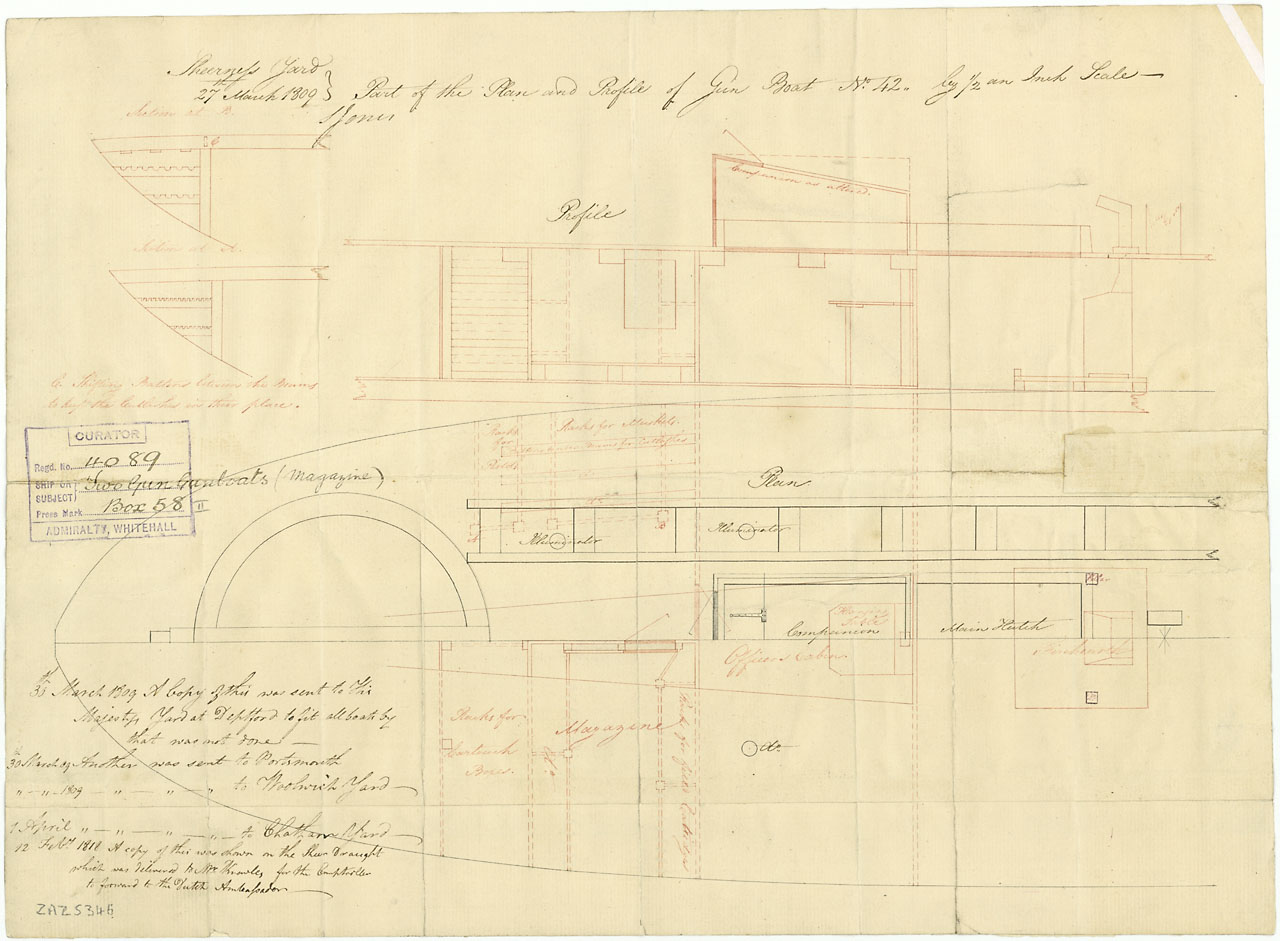 Sheerness Yard
27th March 1809
Part of the Plan and Profile of Gun Boat No. 42. by 1/2 an Inch Scale
S Jones
Section at B.
C
Companion as altered.
Profile
Section at A.
C Shifting Battens between the Beams
to keep the Cutlashes in their place.
Racks for Muskets.
Racks
for
Pistols
CURATOR
Regd. No. 4089
SHIP OR SUBJECT Two Gun Gunboats (Magazine).
Press Mark Box 58 II
ADMIRALTY, WHITEHALL
Plan
Illuminator
Illuminator
Companion
Hanging
Table
Officers Cabin
Main Hatch
Firehearth
30th March 1809 A Copy of this was sent to His
Majestys Yard at Deptford to fit all boats by
that was not done
30 March 09 Another was sent to Portsmouth
" - " - 1809 - " - " - " to Woolwich Yard
1 April " - " - " - " - to Chatham Yard
12 Feby 1818 A copy of this was shown on the Sheer Draught
which was delivered to Mr Knowles for the Comptroller
to forward to the Dutch Ambassador
Racks for
Cartouch
Boxes.
Magazine
Do.
ZAZ5346